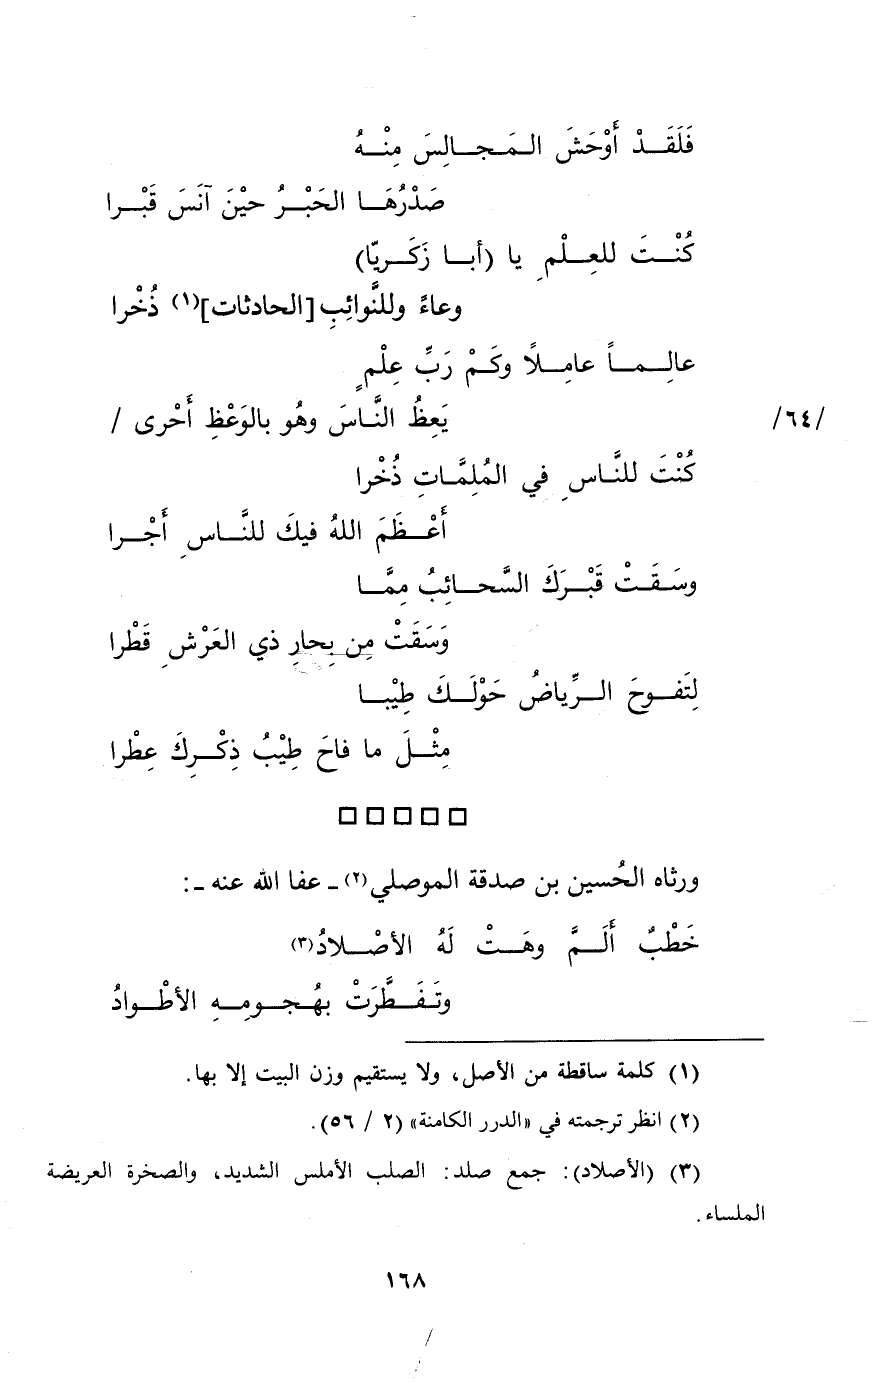 فَلَقَـدْ أَوْحَشَ المَجـالِسَ مِنْـهُ
صَدْرُهَـا الحَبْـرُ حيْنَ آنَسَ قَبْـرا
كُنْـتَ للعِـلْمِ يا (أبـا زَكَـريّا)
وعاءً وللنَّوائِبِ [الحادثات](١) ذُخْرا
عالِـمـاً عامِـلًا وكَمْ رَبِّ عِلْمٍ
يَعِظُ النَّـاسَ وهُو بالوَعْظِ أَحْرى /
/٦٤/
كُنْتَ للنَّـاسِ في المُلِمَّـاتِ ذُخْرا
أَعْـظَمَ اللهُ فيكَ للنَّـاسِ أَجْـرا
وسَـقَـتْ قَبْـرَكَ السَّحـائِبُ مِمَّـا
وَسَقَتْ مِن بِحارِ ذي العَرْشِ قَطْرا
لِتَفـوحَ الـرِّياضُ حَوْلَـكَ طِيْبـا
مِثْـلَ ما فاحَ طِيْبُ ذِكْـرِكَ عِطْرا
□□□□□
ورثاه الحُسين بن صدقة الموصلي(٢) ـ عفا الله عنه ـ:
خَطْبٌ أَلَـمَّ وهَـتْ لَهُ الأصْـلادُ(٣)
وتَـفَـطَّرَتْ بهُـجـومِـهِ الأطْـوادُ
(١) كلمة ساقطة من الأصل، ولا يستقيم وزن البيت إلا بها.
(٢) انظر ترجمته في «الدرر الكامنة» (٢ / ٥٦).
(٣) (الأصلاد): جمع صلد: الصلب الأملس الشديد، والصخرة العريضة
الملساء.
١٦٨